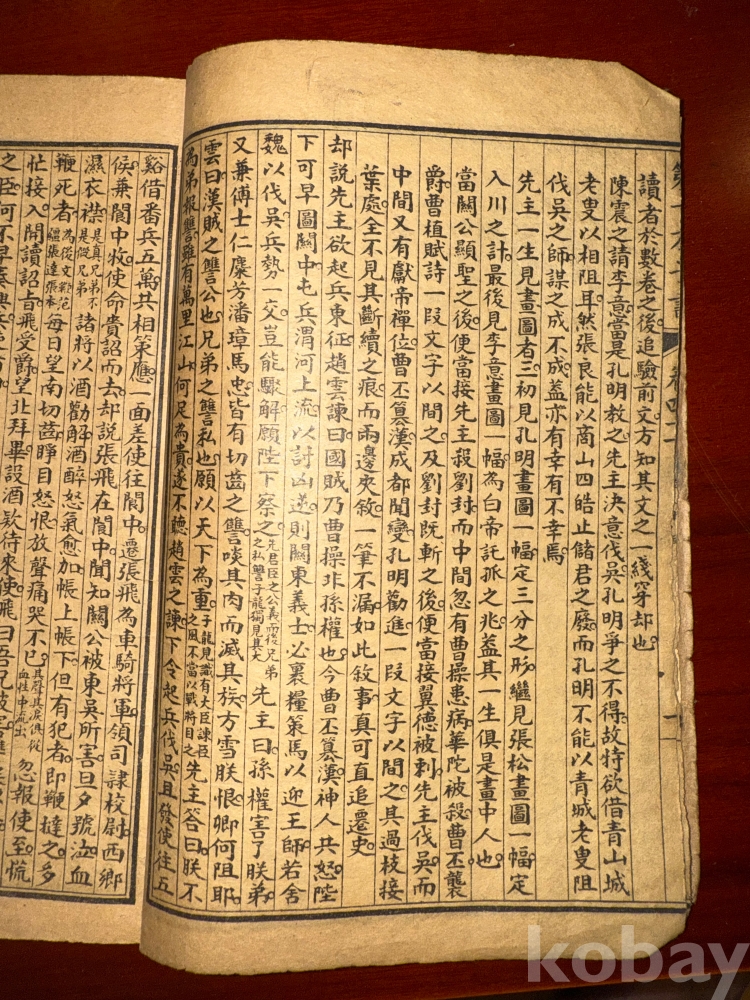 第一才子書 卷四二 一
讀者於數卷之後追驗前文方知其文之一綫穿却也
陳震之請李意當是孔明教之先主決意伐吳孔明爭之不得故特欲借青山城
老叟以相阻耳然張良能以商山四皓止儲君之廢而孔明不能以青城老叟阻
伐吳之師謀之成不成蓋亦有幸有不幸焉
先主一生見畫圖者三初見孔明畫圖一幅定三分之形繼見張松畫圖一幅定
入川之計最後見李意畫圖一幅為白帝託孤之兆蓋其一生俱是畫中人也
當關公顯聖之後便當接先主殺劉封而中間忽有曹操患病華陀被殺曹丕襲
爵曹植賦詩一段文字以間之及劉封既斬之後便當接翼德被刺先主伐吳而
中間又有獻帝禪位曹丕篡漢成都聞變孔明勸進一段文字以間之其過枝接
葉處全不見其斷續之痕而兩邊夾敘一筆不漏如此敘事真可直追遷史
却說先主欲起兵東征趙雲諫曰國賊乃曹操非孫權也今曹丕篡漢神人共怒陛
下可早圖關中屯兵渭河上流以討凶逆則關東義士必裹糧策馬以迎王師若舍
魏以伐吳兵勢一交豈能驟解願陛下察之先君臣之公義而後兄弟之私讐子龍獨見其大先主曰孫權害了朕弟
又兼傅士仁糜芳潘璋馬忠皆有切齒之讐啖其肉而滅其族方雪朕恨卿何阻耶
雲曰漢賊之讐公也兄弟之讐私也願以天下為重子龍見識有大臣諫臣之風不當以戰將目之先主答曰朕不
為弟報讐雖有萬里江山何足為貴遂不聽趙雲之諫下令起兵伐吳且發使往五
谿借番兵五萬共相策應一面差使往閬中遷張飛為車騎將軍領司隷校尉西鄉
侯兼閬中牧使命賫詔而去却說張飛在閬中聞知關公被東吳所害旦夕號泣血
濕衣襟是真兄弟不是假兄弟諸將以酒勸解酒醉怒氣愈加帳上帳下但有犯者即鞭撻之多
鞭死者為後文範疆張達張本每日望南切齒睜目怒恨放聲痛哭不已其聲其淚俱從血性中流出忽報使至慌
忙接入開讀詔旨飛受爵望北拜畢設酒款待來使飛曰吾兄被害讐
之臣何不早
kobay